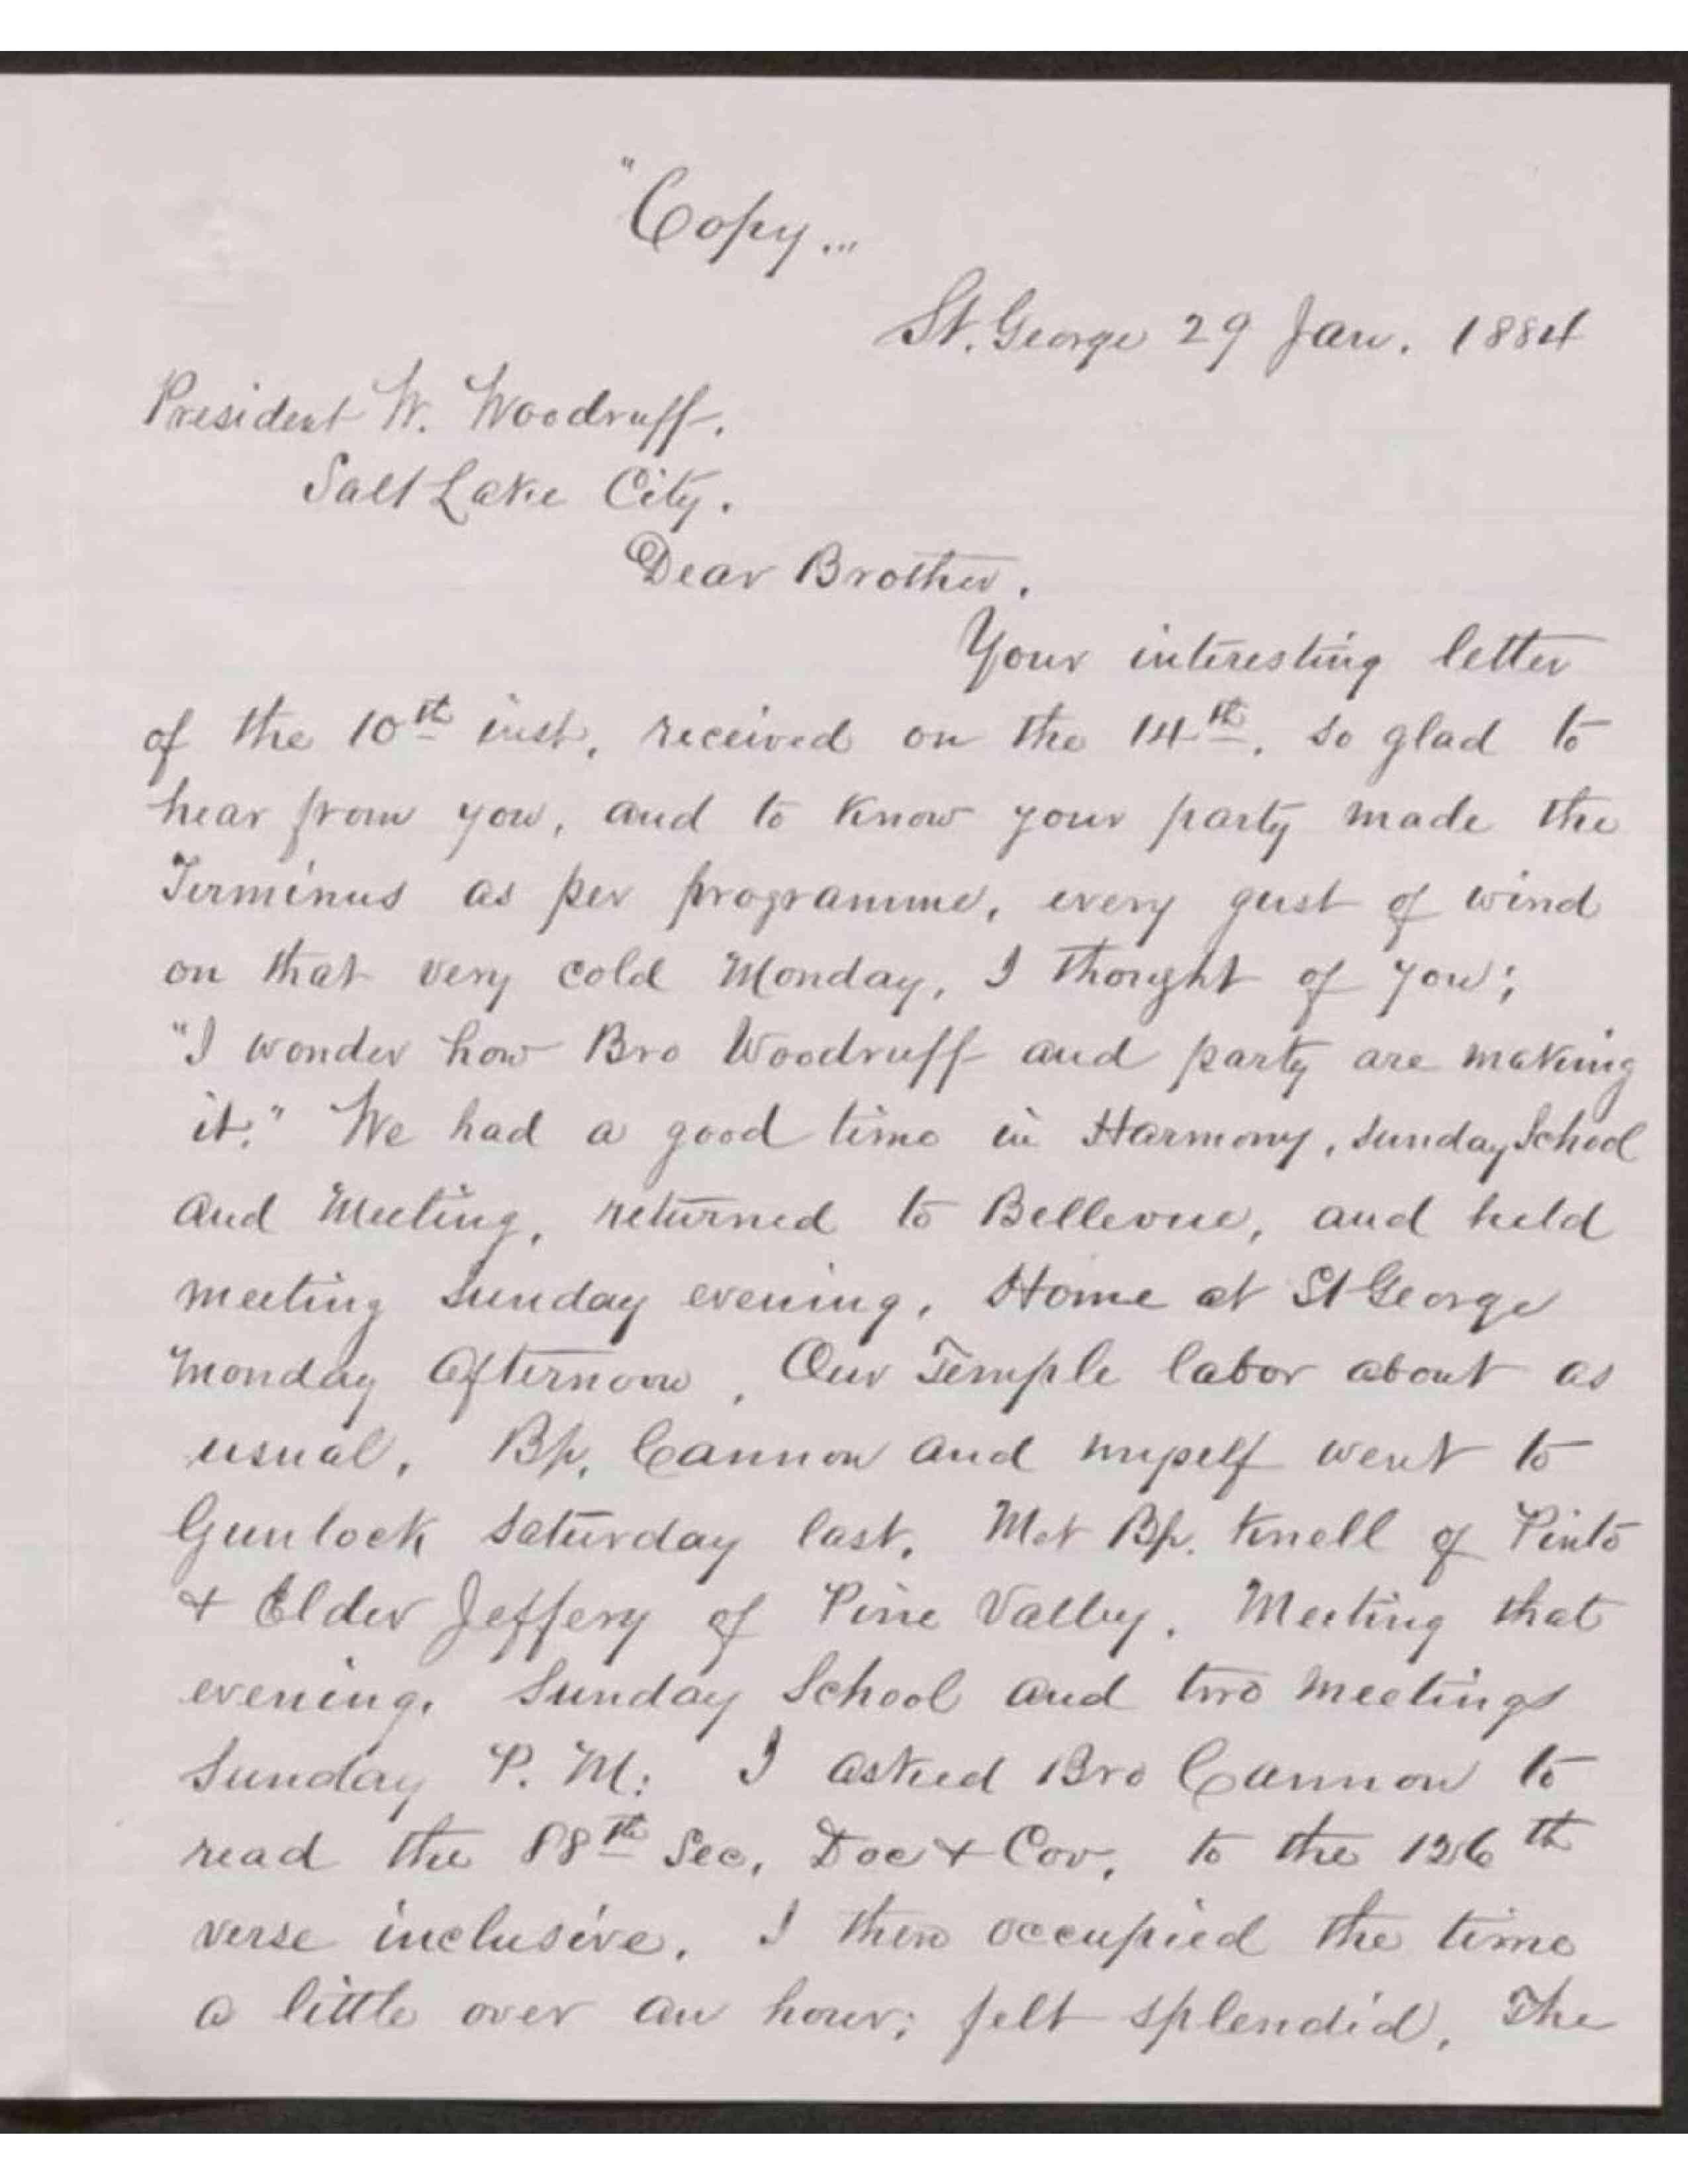 "Copy..."
St. George 29 Jan. 1884
President W. Woodruff.
Salt Lake City.
Dear Brother.
Your interesting letter
of the 10th inst, received on the 14th. so glad to
hear from you, and to know your party made the
Terminus as per programme, every gust of wind
on that very cold Monday, I thought of you;
"I wonder how Bro Woodruff and party are making
it." We had a good time in Harmony, Sunday School
and Meeting, returned to Bellevue, and held
meeting Sunday evening. Home at St George
Monday Afternoon. Our Temple labor about as
usual. Bp. Cannon and myself went to
Gunlock Saturday last. Met Bp. Knell of Pinto
& Elder Jeffery of Pine Valley. Meeting that
evening. Sunday School and two meetings
Sunday P. M: I asked Bro Cannon to
read the 88th Sec, Doc & Cov, to the 126th
verse inclusive. I then occupied the time
a little over an hour; felt splendid. The